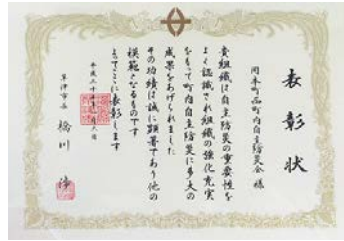 表彰状
岡本町西町内自主防災会 様
貴組織は自主防災の重要性を
よく認識され組織の強化充実
をもって町内自主防災に多大の
成果をあげられました
その功績は誠に顕著であり他の
模範となるものです
よってここに表彰します
平成三十年 月 日
草津市長 橋川 渉